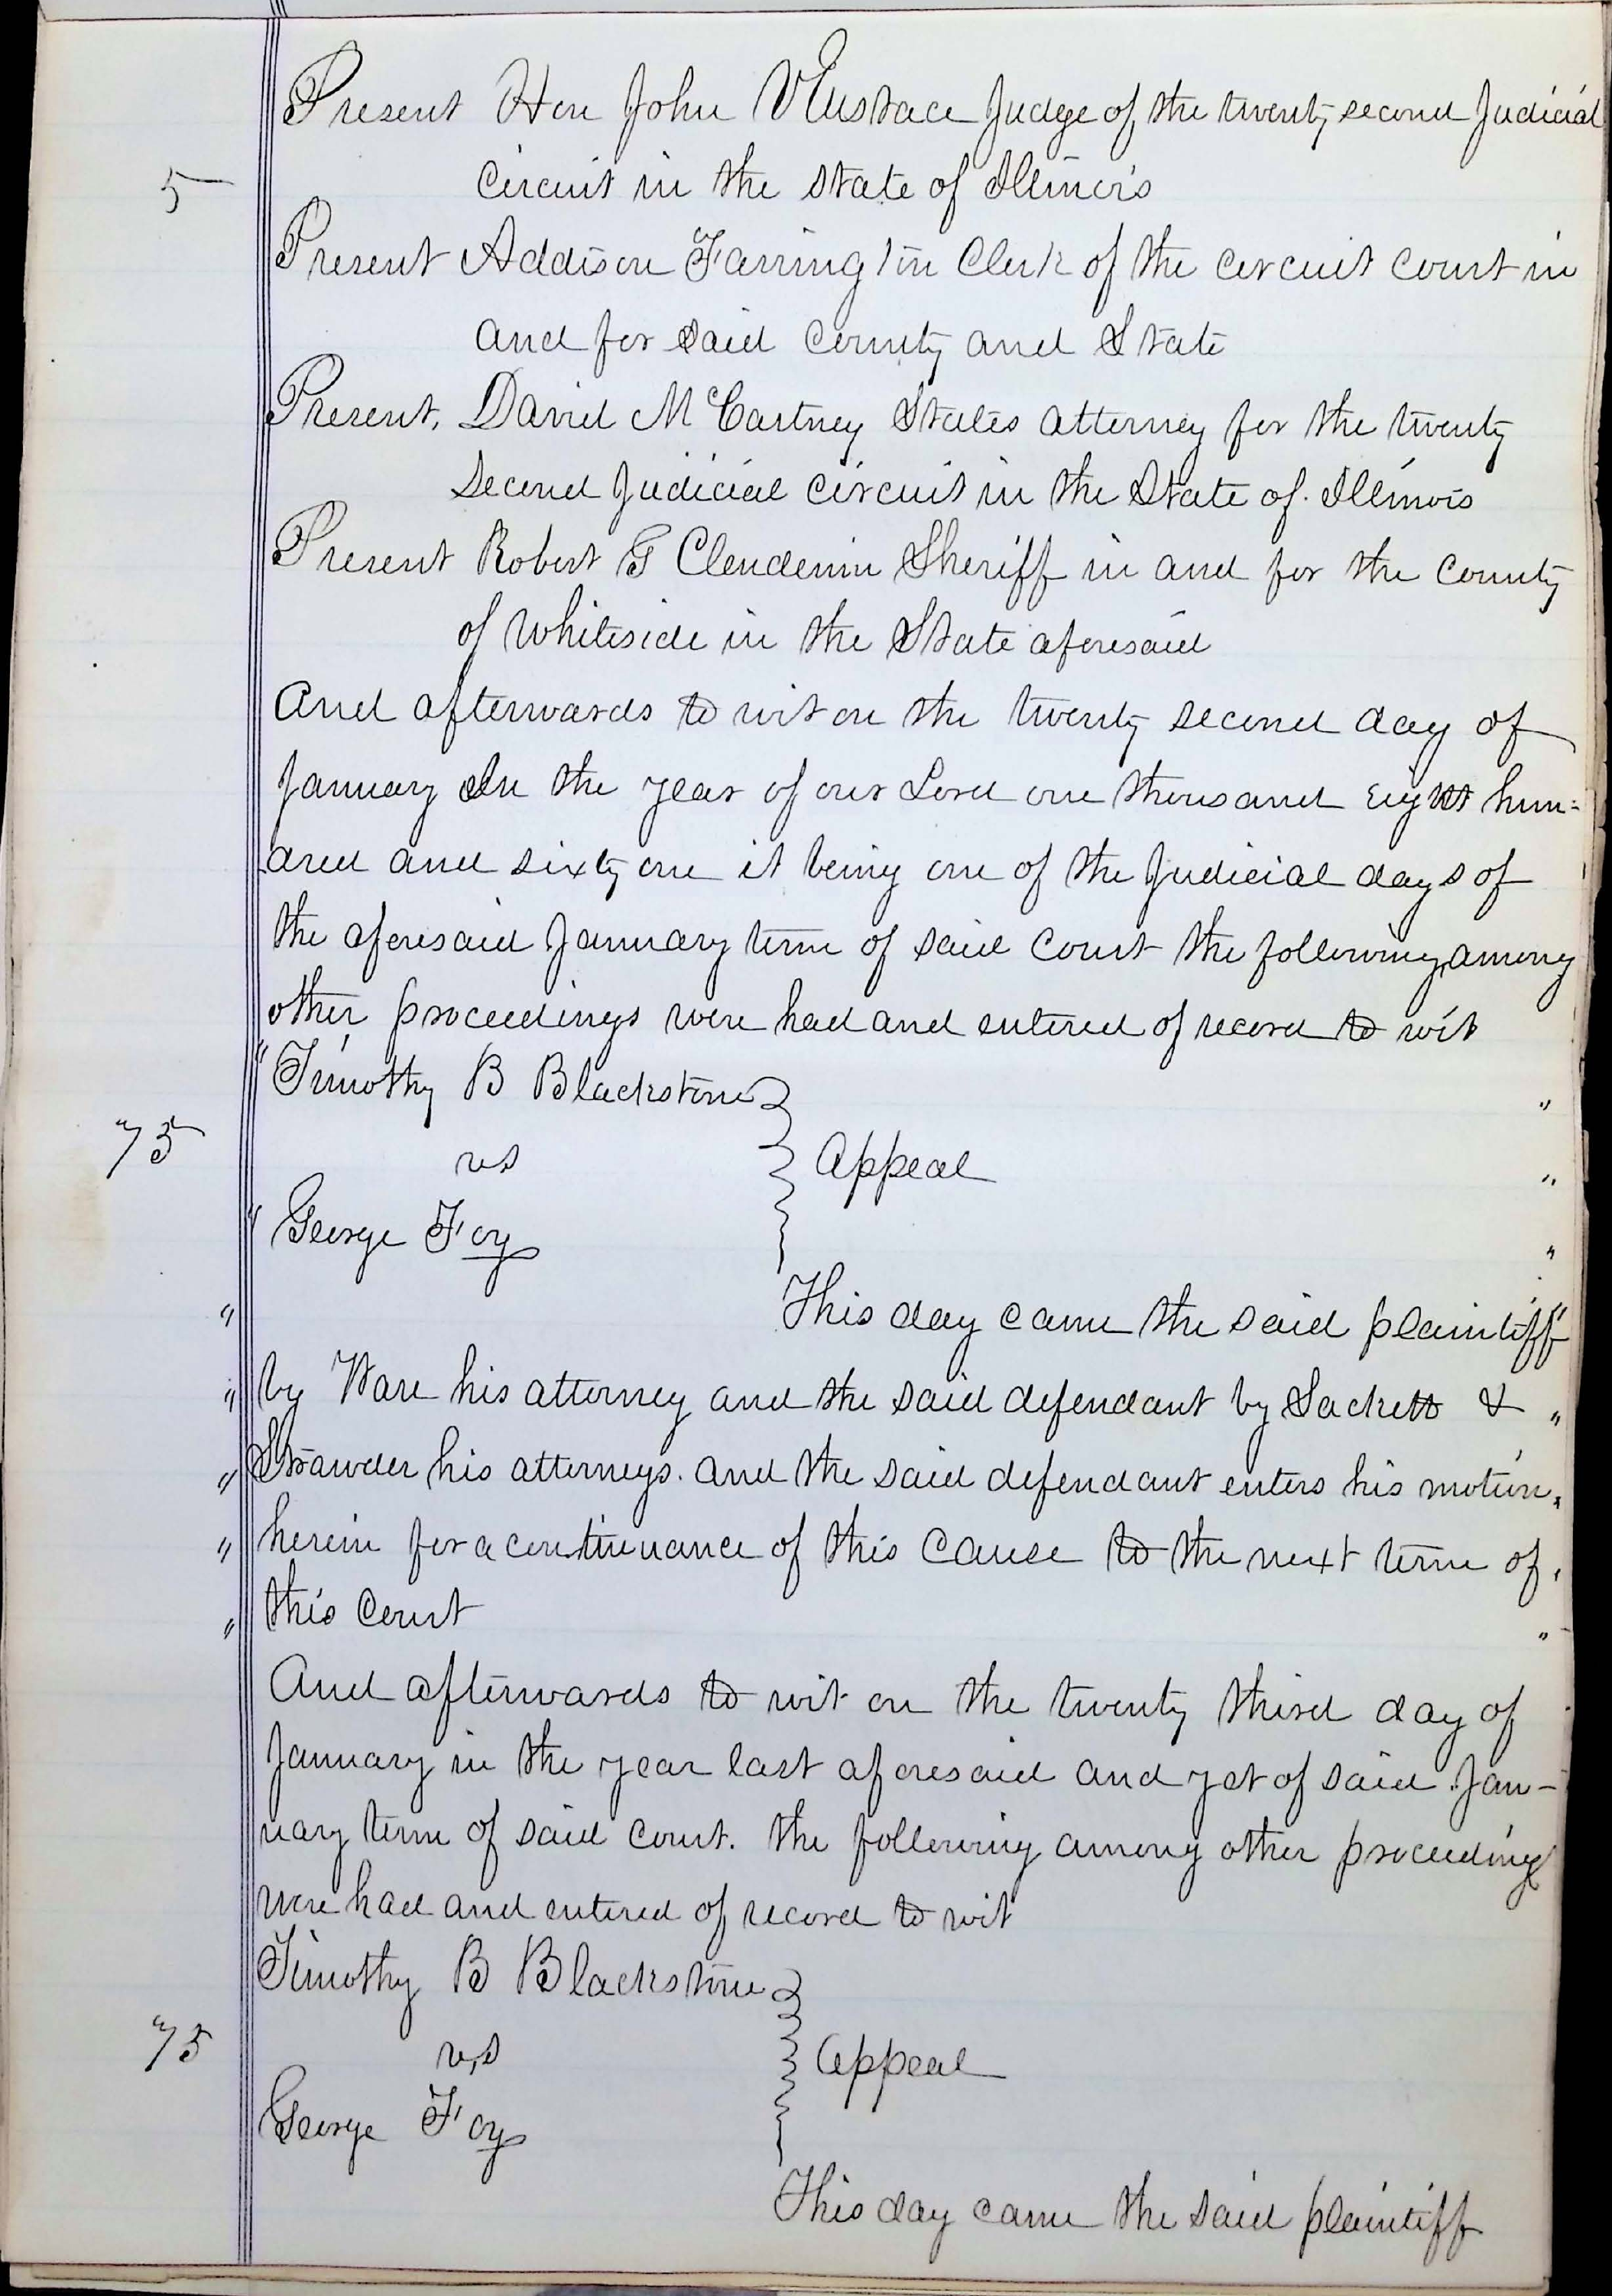 Present Hon John V Eustace Judge of the twenty second Judicial
5
circuit in the state of Illinois
Present Addison Farrington Clerk of the circuit court in
and for said County and State
Present, David McCartney States attorney for the twenty
second Judicial circuit in the State of Illinois
Present Robert G Clendenin Sheriff in and for the County
of Whiteside in the State aforesaid
And afterwards to wit on the twenty second day of
January In the year of our Lord one thousand Eight hun=
dred and sixty one it being one of the Judicial days of
the aforesaid January term of said Court the following, among
other proceedings were had and entered of record to wit
" Timothy B Blackstone "
75
vs } Appeal "
" George Foy "
" This day came the said plaintiff "
" by Ware his attorney and the said defendant by Sackett & "
" Strawder his attorneys. and the said defendant enters his motion "
" herein for a continuance of this Cause to the next term of "
" this Court "
And afterwards to wit on the twenty third day of
January in the year last aforesaid and yet of said Jan-
uary term of said court. the following among other proceedings
were had and entered of record to wit
Timothy B Blackstone
75
vs } Appeal
George Foy
This day came the said plaintiff